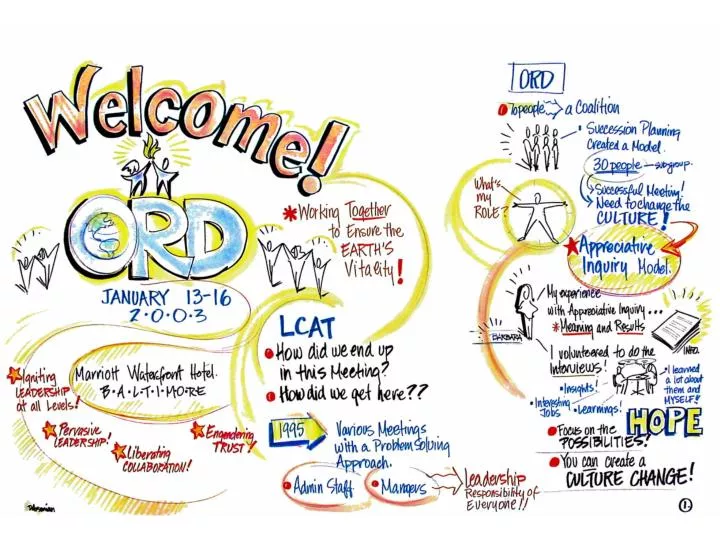 Welcome!
ORD
JANUARY 13-16
2·0·0·3
Marriott Waterfront Hotel.
B·A·L·T·I·MORE
Igniting
LEADERSHIP
at all Levels!
Pervasive
LEADERSHIP!
Liberating
COLLABORATION!
Engendering
TRUST!
*Working Together
to Ensure the
EARTH'S
Vitality!
LCAT
How did we end up
in this Meeting?
How did we get here??
1995
Various Meetings
with a Problem Solving
Approach.
Admin Staff
Managers
Leadership
Responsibility of
Everyone!!
ORD
70 people → a Coalition
• Succession Planning
Created a Model.
30 people — subgroup.
→ Successful Meeting!
→ Need to change the
CULTURE!
What's
my
ROLE?
Appreciative
Inquiry Model.
My experience
with Appreciative Inquiry...
*Meaning and Results
BARBARA
INFO.
I volunteered to do the
Interviews!
• Insights!
• Interesting
Jobs
• Learnings!
• I learned
a lot about
them and
MYSELF!!
HOPE
Focus on the
POSSIBILITIES!
You can create a
CULTURE CHANGE!
1.